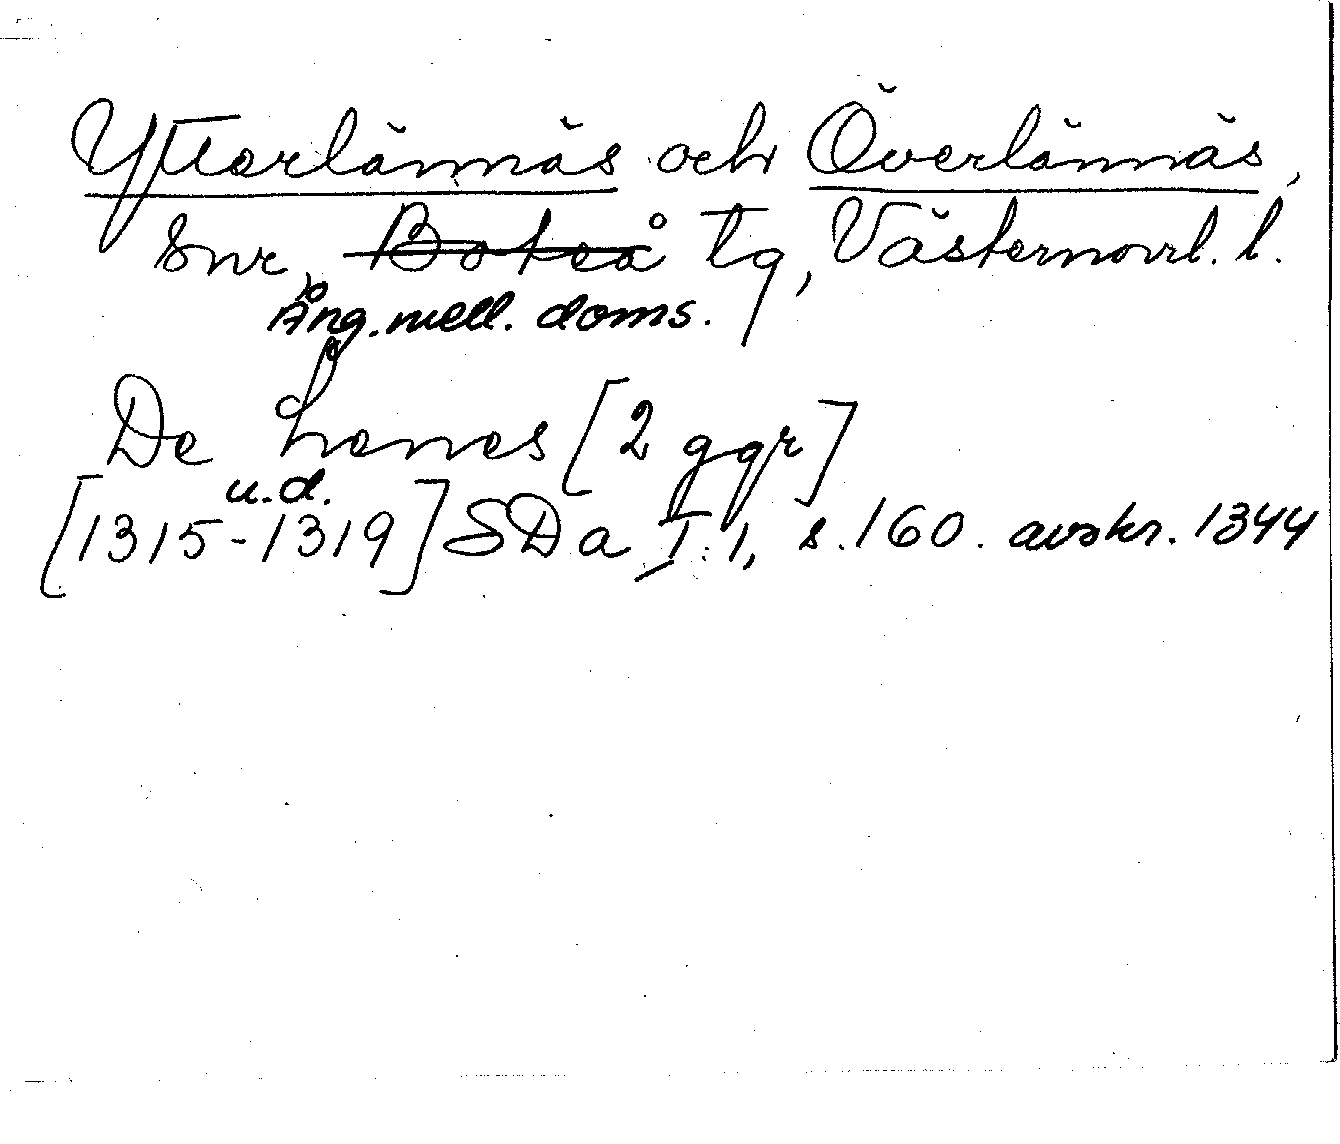 Ytterlännäs och Överlännäs,
snr, Boteå tg, Västernorrl. l.
Ång. mell. doms.
De Lænes [2 ggr]
u.d.
[1315-1319] SDa I:1, s. 160. avskr. 1344